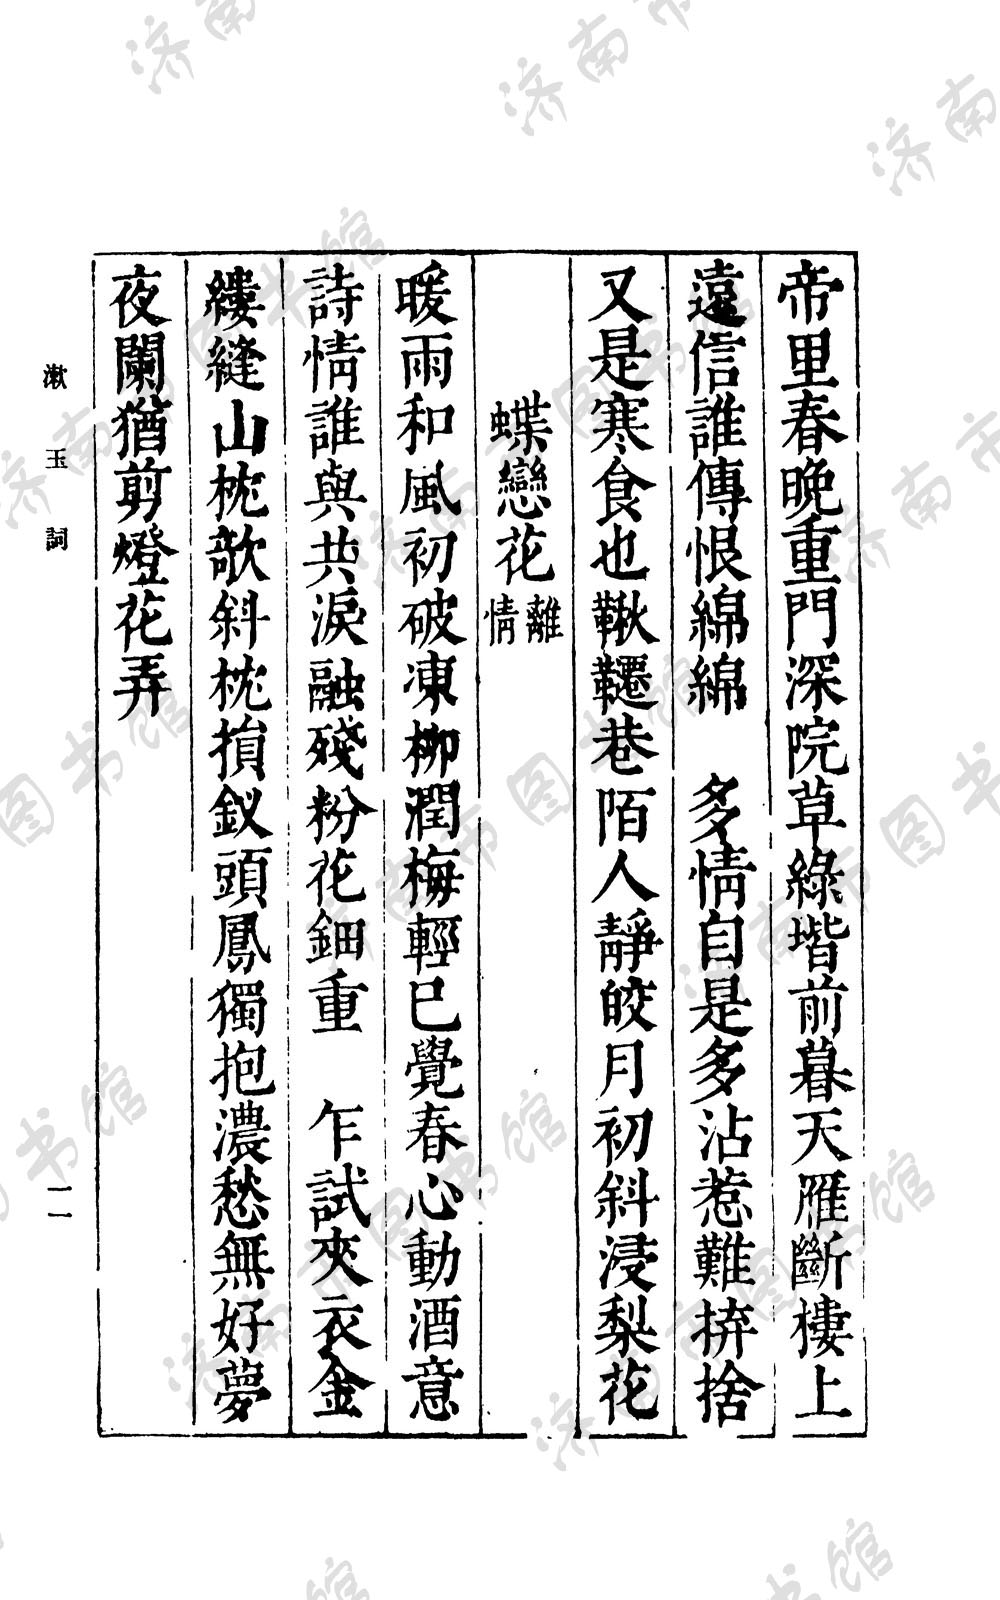 帝里春晚重門深院草綠堦前暮天雁斷樓上
遠信誰傳恨綿綿　多情自是多沾惹難拚捨
又是寒食也鞦韆巷陌人靜皎月初斜浸梨花
蝶戀花離情
暖雨和風初破凍柳潤梅輕已覺春心動酒意
詩情誰與共淚融殘粉花鈿重　乍試夾衣金
縷縫山枕欹斜枕損釵頭鳳獨抱濃愁無好夢
夜闌猶剪燈花弄
漱玉詞　二
济南市图书馆